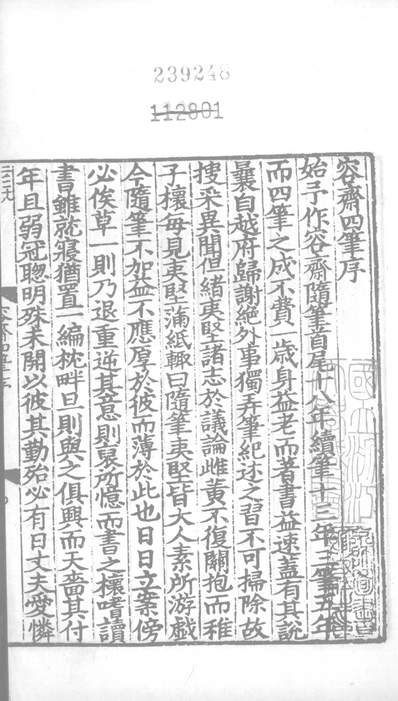 239248
112801
容齋四筆序
始予作容齋隨筆首尾十八年續筆十三年三筆五年
而四筆之成不費一歲身益老而著書益速蓋有其說
曩自越府歸謝絕外事獨弄筆紀述之習不可掃除故
搜采異聞但緒夷堅諸志於議論雌黃不復關抱而稚
子櫰每見夷堅滿紙輒曰隨筆夷堅皆大人素所游戲
今隨筆不加益不應厚於彼而薄於此也日日立案傍
必俟草一則乃退重逆其意則裒所憶而書之櫰嗜讀
書雖就寢猶置一編枕畔旦則與之俱興而天嗇其付
年且弱冠聰明殊未開以彼其勤殆必有日丈夫愛憐